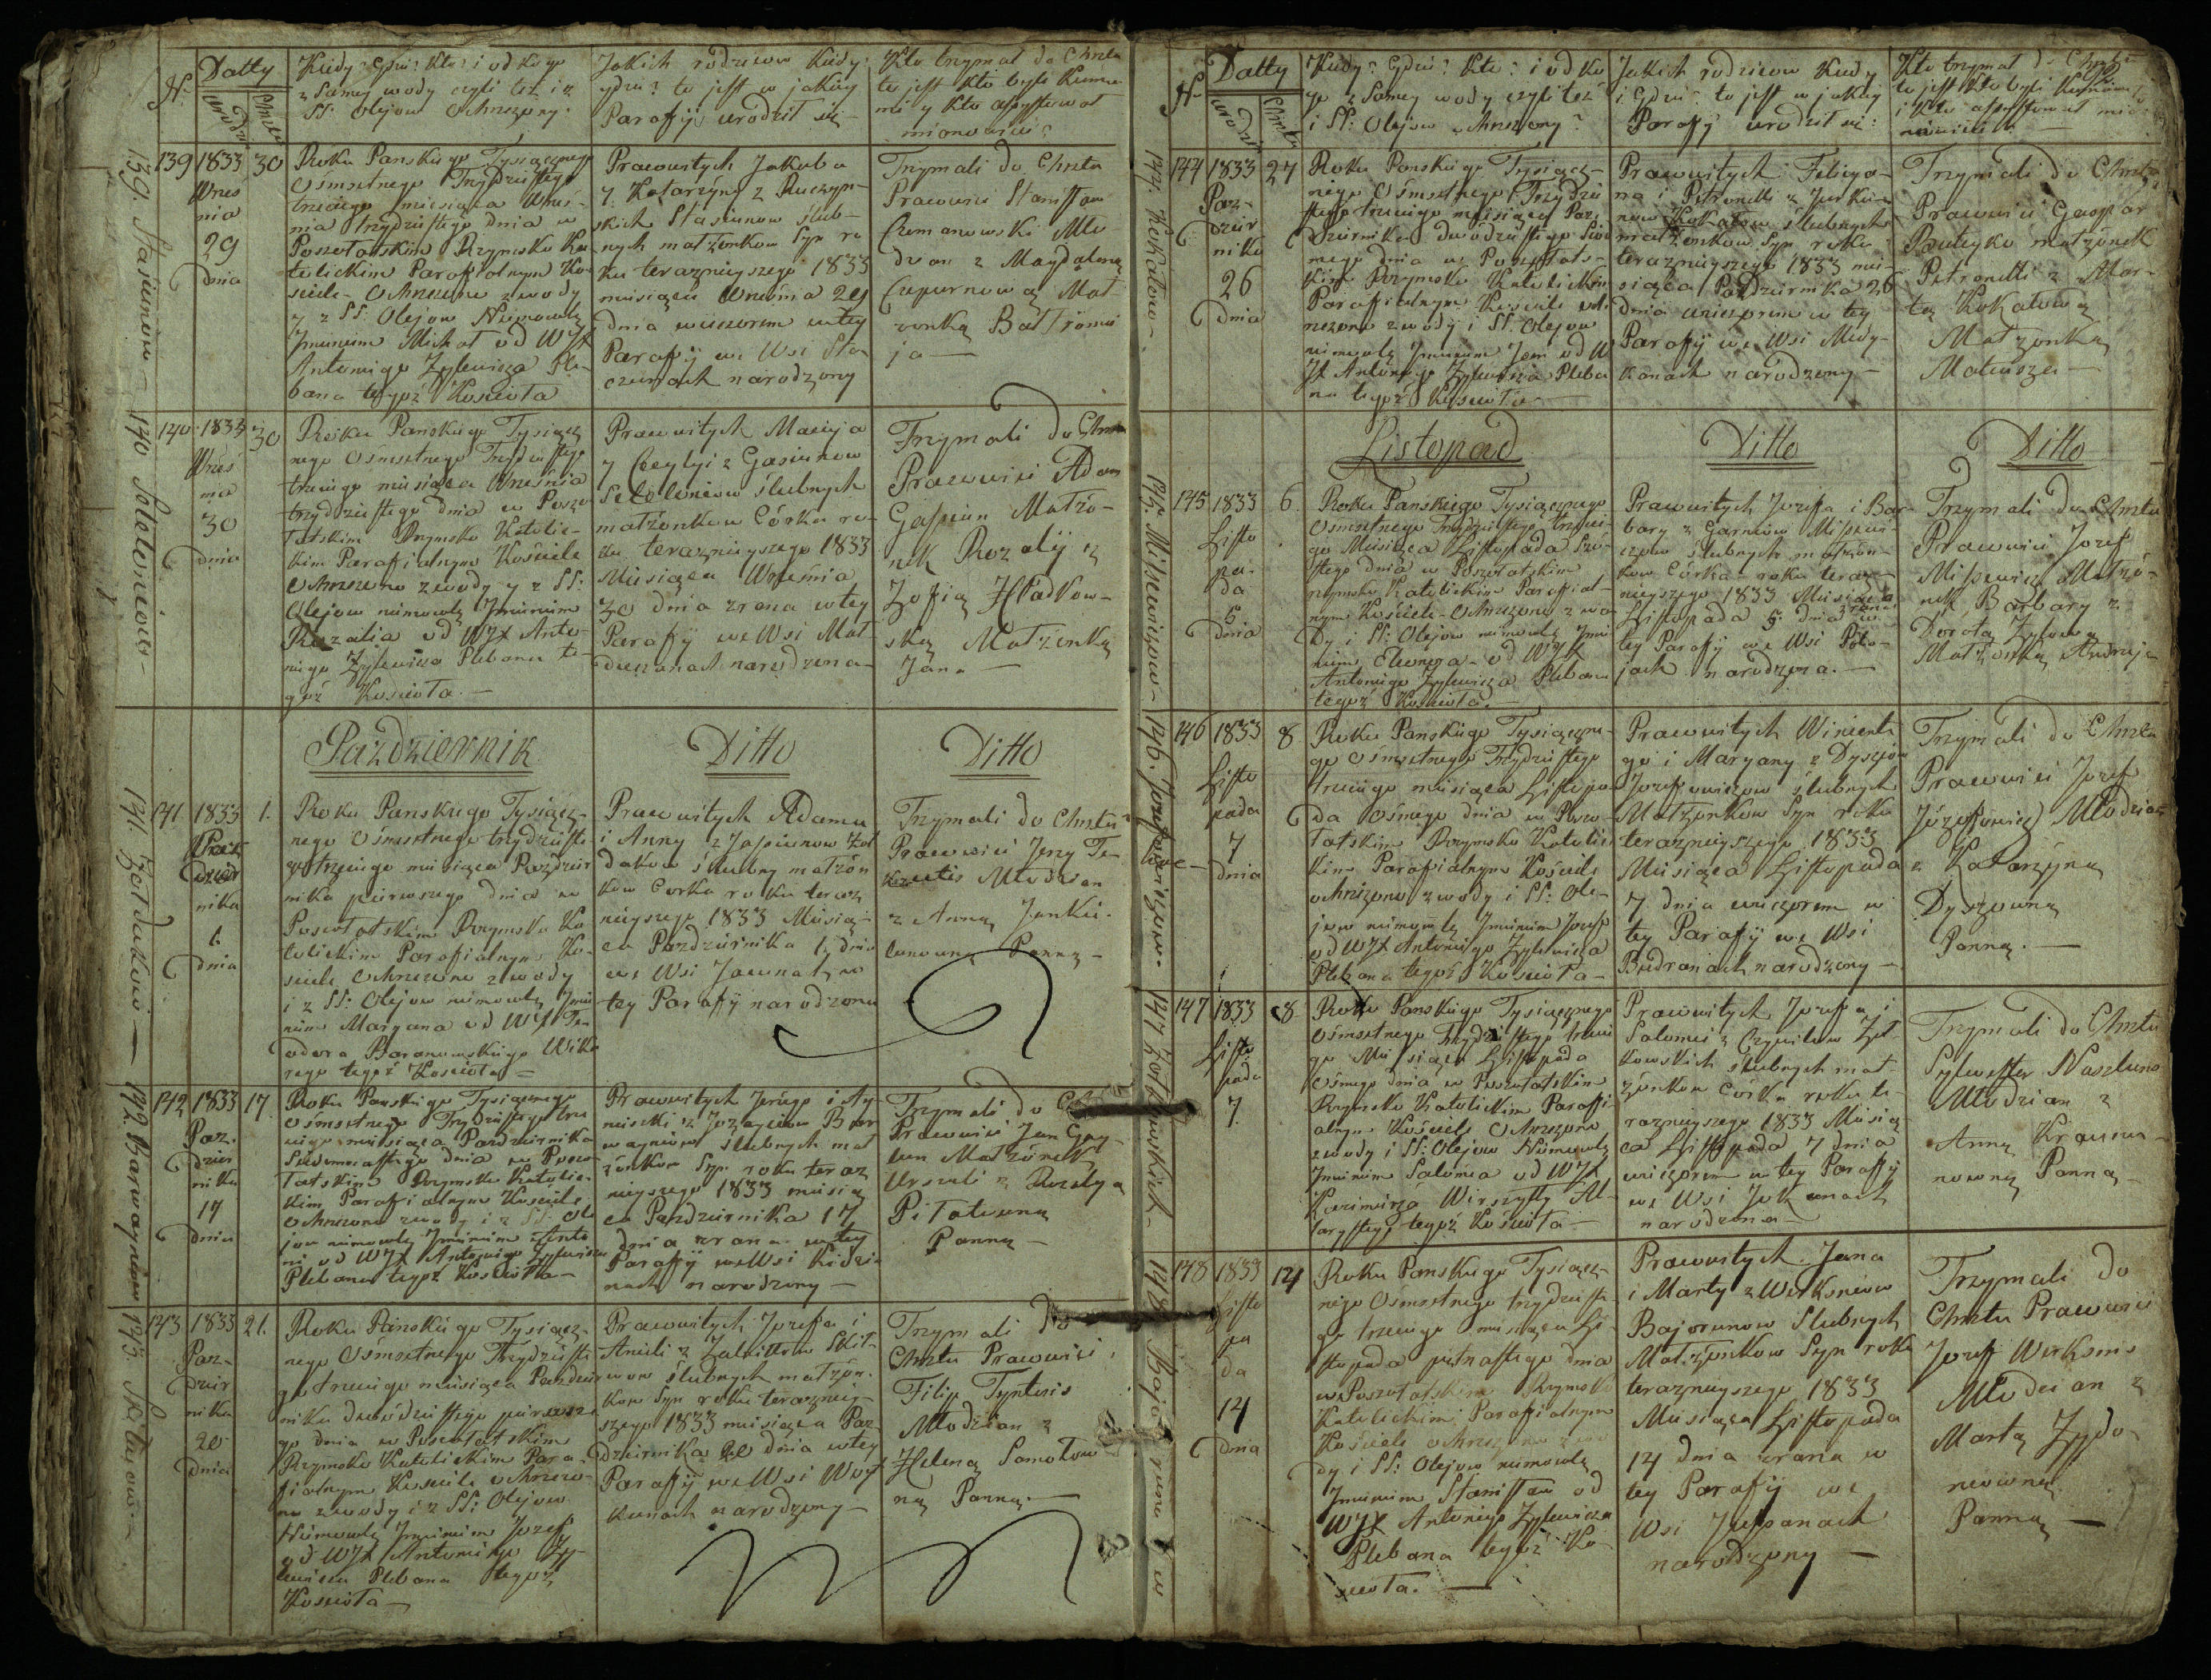 N
Datty
urodz
Chrztu
Kiedy? Gdzie? Kto? i od kogo
z Samey wody czyli też i z
SS. Olejow Ochrzczony.
Jakich rodzicow kiedy?
gdzie? to jest w jakiey
Parafij urodził się
Kto trzymał do Chrztu
to jest kto byli Kuma
mi y kto assystował
mianowicie?
139. Stasiunow
139
1833
Wrześ
nia
29
dnia
30
Roku Panskiego Tysiącznego
Osmsetnego Trzydziestego
trzeciego miesiąca Wrześ-
nia trzydziestego dnia w
Poszołatskim Rzymsko Ka
tolickim Parafialnym Ko-
sciele Ochrzczono z wody
y z SS. Olejow Niemowle
Imieniem Michał od WJX
Antoniego Zylewicza Ple-
bana tegoż Koscioła
Prawowitych Jakuba
y Katarzyny z
skich Stasiunow slub-
nych małżonkow Syn ro
ku terazniejszego 1833
miesiąca Wrzesnia 29
dnia wieczorem w tey
Parafij we Wsi
narodzony
Trzymali do Chrztu
Prawowici Stanisław
Młod
zian z Magdaleną
Mał
żonką Bałtromi
ja
140 Sololoniow
140
1833
Wrześ
nia
30
dnia
30
Roku Panskiego Tysiącz
nego Osmsetnego Trzydziestego
trzeciego miesiąca Września
trzydziestego dnia w Poszo
łatskim Rzymsko Katolic-
kim Parafialnym Kościele
Ochrzczono z wody y z SS:
Olejow niemowle Imieniem
Rozalia od WJX Anto-
niego Zylewicza Plebana te-
goż Koscioła
Prawowitych Macieja
y Cecylyi z Gasiunow
slubnych
małżonkow Córka ro-
ku terazniejszego 1833
Miesiąca Września
30 dnia z rana w tey
Parafij we Wsi Mał-
narodzona
Trzymali do Chrztu
Prawowici Adam
Gasiun Małżo-
nek Rozalij z
Zofią
ską Małżonką
Jana
Pazdziernik
Ditto
Ditto
141. Zołdakow
141
1833
Paz
dzier
nika
1.
dnia
1.
Roku Panskiego Tysiącz-
nego Osmsetnego trzydzieste
go trzeciego miesiąca Pazdzier
nika pierwszego dnia w
Poszołatskim Rzymsko Ka
tolickim Parafialnym Ko-
sciele Ochrzczono z wody
i z SS: Olejow niemowle Imie
niem Maryana od WJX Te-
odora Baranowskiego Wika
rego tegoż Koscioła
Prawowitych Adama
i Anny z Zoł
dakow slubny małżon
kow Corka roku teraz
niejszego 1833 Miesią-
ca Pazdziernika 1. dnia
we Wsi w
tey Parafij narodzona
Trzymali do Chrztu
Prawowici Jerzy
Młodzian
z Anną
Panną
142. Barwayniow
142
1833
Paz-
dzier
nika
17
dnia
17
Roku Panskiego Tysiącznego
Osmsetnego Trzydziestego trze
ciego miesiąca Pazdziernika
Siedemnastego dnia w Poszo
łatskim Rzymsko Katolic-
kim Parafialnym Kościele
Ochrzczono z wody i z SS. Ole
jow niemowle Imieniem Anto
ni od WJX Antoniego Zylewicza
Plebana tegoż Koscioła
Prawowitych Jerzego i Ag-
nieszki z Bar
wayniow slubnych mał
żonkow Syn roku teraz
niejszego 1833 miesią
ca Pazdziernika 17
dnia z rana w tey
Parafij we Wsi
narodzony
Trzymali do
Prawowici Jan
Małżonek
Urszuli z Rozalyą
Panną
143
1833
Paz-
dzier
nika
20
dnia
21.
Roku Panskiego Tysiącz-
nego Osmsetnego Trzydzieste
go trzeciego miesiąca Pazdzier
nika dwudziestego pierwsze
go dnia w Poszołatskim
Rzymsko Katolickim Para-
fialnym Kosciele ochrzczo-
no z wody i z SS: Olejow
Niemowle Imieniem Jozef
od WJX Antoniego Zy-
lewicza Plebana tegoż
Koscioła
Prawowitych Jozefa i
Anieli z
slubnych małżon-
kow Syn roku terazniej-
szego 1833 miesiąca Paz
dziernika 20 dnia w tey
Parafij we Wsi
narodzony
Trzymali do
Chrztu Prawowici
Filip
Młodzian z
Heleną
Panną
N
Datty
urodz
Chrztu
Kiedy? Gdzie? Kto? i od ko
go z Samey wody czyli też
i SS: Olejow ochrzczony?
Jakich rodzicow kiedy
i Gdzie? to jest w jakiey
Parafij urodził się:
Kto trzymał do Chrztu
to jest kto byli Kumami
i kto assystował mia-
nowicie
144. Kokałow
144
1833
Paz-
dzier
nika
26
dnia
27
Roku Panskiego Tysiącz-
nego Osmsetnego Trzydzie
stego trzeciego miesiąca Paz
dziernika dwódziestego Siód
mego dnia w Poszołats-
kim Rzymsko Katolickim
Parafialnym Kościele och-
rzczono z wody i SS. Olejow
niemowle Imieniem Jan od W
JX Antoniego Zylewicza Pleba
na tegoż Koscioła
Prawowitych Felicya-
na i Petronelli z
now Kokałow slubnych
małżonkow Syn roku
terazniejszego 1833 mie-
siąca Pazdziernika 26
dnia wieczorem w tey
Parafij we Wsi Medy-
kanach narodzony
Trzymali do Chrztu
Prawowici Gaspar
małżonek
Petronelli z Mar-
tą Kokałową
Małżonką
Mateusza
Listopad
Ditto
Ditto
145. Missewiczow
145
1833
Listo
pa-
da
5
dnia
6
Roku Panskiego Tysiącznego
Osmsetnego Trzydziestego trzecie-
go Miesiąca Listopada Szó-
stego dnia w Poszołatskim
rzymsko Katolickim Parafial-
nym Kościele Ochrzczono z wo
dy i SS: Olejow niemowle Imie
niem Eleonora od WJX
Antoniego Zylewicza Plebana
tegoż Koscioła
Prawowitych Jozefa i Bar-
bary z Garniow Missewi-
czow slubnych małżon-
kow Córka roku teraz-
niejszego 1833 Miesiąca
Listopada 5. dnia z rana w
tey Parafij we Wsi
narodzona
Trzymali do Chrztu
Prawowici Jozef
Missewicz Małżo-
nek Barbary z
Dorotą
Małżonką Andrzeja
146. Jozefowiczow
146
1833
Listo
pada
7
dnia
8
Roku Panskiego Tysiączne-
go Osmsetnego Trzydziestego
trzeciego miesiąca Listopa
da Osmego dnia w Poszo-
łatskim Rzymsko Katolic
kim Parafialnym Kosciele
ochrzczono z wody i SS: Ole-
jow niemowle Imieniem Jozef
od WJX Antoniego Zylewicza
Plebana tegoż Koscioła
Prawowitych Wincente
go i Maryany z Dyszów
Jozefowiczow slubnych
Małżonkow Syn roku
terazniejszego 1833
Miesiąca Listopada
7 dnia wieczorem w
tey Parafij we Wsi
Budranach narodzony
Trzymali do Chrztu
Prawowici Jozef
Józefowicz Młodzian
z Katarzyną
Dyszowną
Panną.
147
147
1833
Listo
pada
7.
8
Roku Panskiego Tysiącznego
Osmsetnego Trzydziestego trzecie
go Miesiąca Listopada
Osmego dnia w Poszołatskim
Rzymsko Katolickim Parafi-
alnym Kościele Ochrzczono
z wody i SS: Olejow Niemowle
Imieniem Salomea od WJX
Kazimierza Wirszyłły Al-
tarysty tegoż Kościoła
Prawowitych Jozefa i
Salomei z
kowskich slubnych mał-
żonkow Corka roku te-
razniejszego 1833 Miesią
ca Listopada 7 dnia
wieczorem w tey Parafij
we Wsi
narodzona
Trzymali do Chrztu
Sylwester
Młodzian z
Anną
nowną Panną
148 Bajorunow
148
1833
Listo
pa
da
14
dnia
14
Roku Panskiego Tysiącz-
nego Osmsetnego trzydzieste
go trzeciego miesiąca Li-
stopada dnia
w Poszołatskim Rzymsko
Katolickim Parafialnym
Kościele ochrzczono z wo
dy i SS: Olejow niemowle
Imieniem Stanisław od
WJX Antoniego Zylewicza
Plebana tegoż Ko-
scioła.
Prawowitych Jana
i Marty z Wirksniow
Bajorunow Slubnych
Małżonkow Syn roku
terazniejszego 1833
Miesiąca Listopada
14 dnia z rana w
tey Parafij we
Wsi
narodzony
Trzymali do
Chrztu Prawowici
Jozef Wirksnis
Młodzian z
Martą
Panną